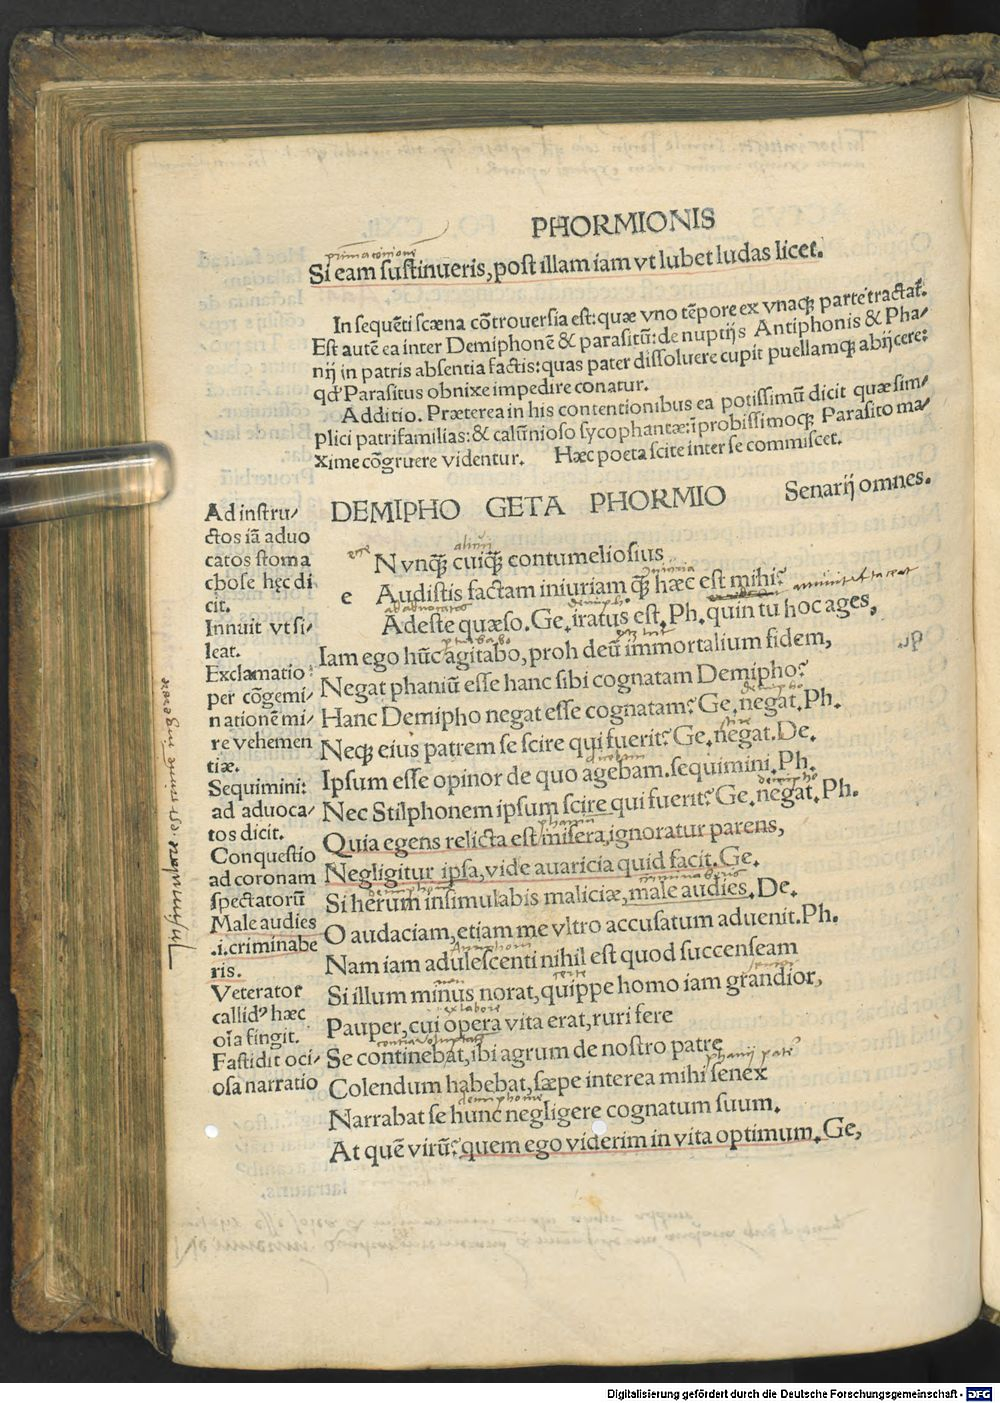 PHORMIONIS
Si eam sustinueris, post illam iam vt lubet ludas licet.
In sequẽti scæna cõtrouersia est: quæ vno tẽpore ex vnaqꝫ parte tractat᷑.
Est autẽ ea inter Demiphonẽ & parasitũ: de nuptijs Antiphonis & Pha/
nij in patris absentia factis: quas pater dissoluere cupit puellamqꝫ abijcere:
qđ Parasitus obnixe impedire conatur.
Additio. Præterea in his contentionibus ea potissimũ dicit quæ sim/
plici patrifamilias: & calũnioso sycophantæ: improbissimoqꝫ Parasito ma/
xime cõgruere videntur. Hæc poeta scite inter se commiscet.
DEMIPHO GETA PHORMIO Senarij omnes.
e
Nvnqꝫ̃ cuiqꝫ̃ contumeliosius
Audistis factam iniuriam qꝫ̃ hæc est mihi?
Adeste quæso. Ge. iratus est. Ph. quin tu hoc ages,
Iam ego hũc agitabo, proh deũ immortalium fidem,
Negat phaniũ esse hanc sibi cognatam Demipho?
Hanc Demipho negat esse cognatam? Ge. negat. Ph.
Neqꝫ eius patrem se scire qui fuerit? Ge. negat. De.
Ipsum esse opinor de quo agebam. sequimini. Ph.
Nec Stilphonem ipsum scire qui fuerit? Ge. negat. Ph.
Quia egens relicta est misera, ignoratur parens,
Negligitur ipsa, vide auaricia quid facit. Ge.
Si herum insimulabis maliciæ, male audies. De.
O audaciam, etiam me vltro accusatum aduenit. Ph.
Nam iam adulescenti nihil est quod succenseam
Si illum minus norat, quippe homo iam grandior,
Pauper, cui opera vita erat, ruri fere
Se continebat, ibi agrum de nostro patre
Colendum habebat, sæpe interea mihi senex
Narrabat se hunc negligere cognatum suum.
At quẽ virũ? quem ego viderim in vita optimum. Ge,
Ad instru/
ctos iã aduo
catos stoma
chose hęc di
cit.
Innuit vt si/
leat.
Exclamatio
per cõgemi/
nationẽ mi/
re vehemen
tiæ.
Sequimini:
ad aduoca/
tos dicit.
Conquestio
ad coronam
spectatorũ
Male audies
.i. criminabe
ris.
Veterator
callidꝰ hæc
oĩa fingit.
Fastidit oci/
osa narratio
Digitalisierung gefördert durch die Deutsche Forschungsgemeinschaft - DFG